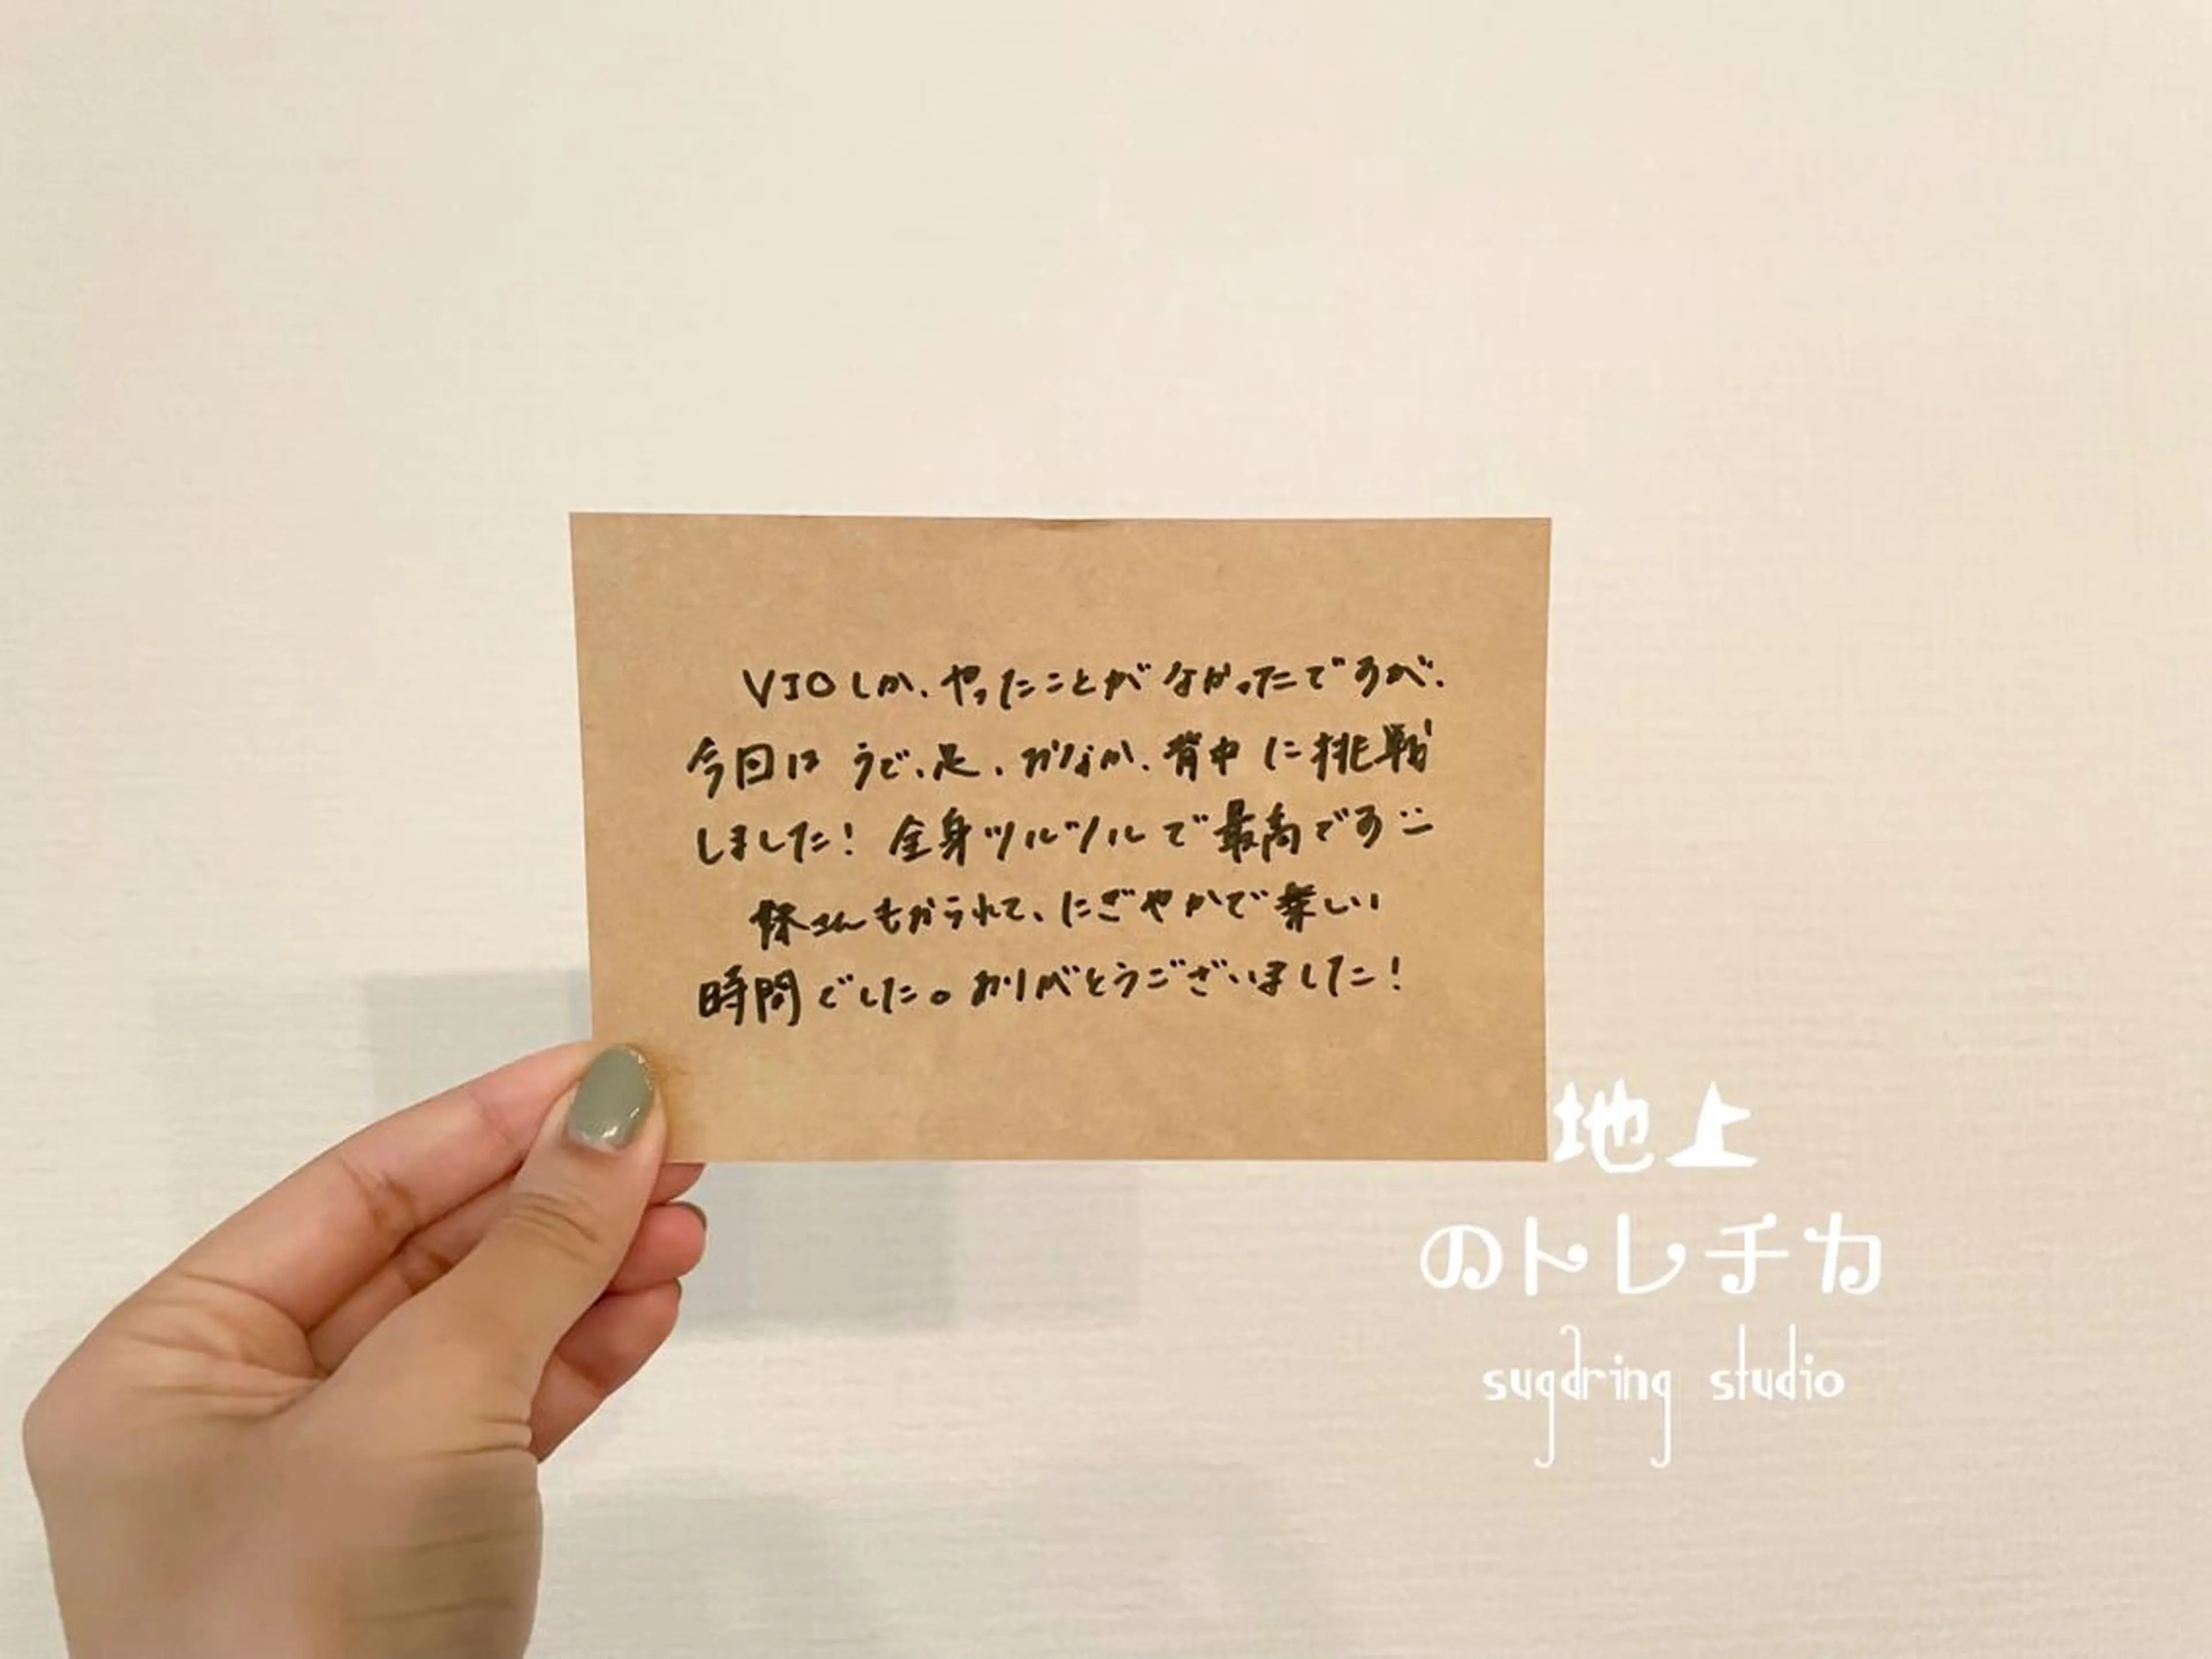 VIOしか、やったことがなかったですが、
今回は うで、足、おなか、背中 に挑戦
しました! 全身ツルツル で最高です
さんもおられて、にぎやかで楽しい
時間でした。ありがとうございました!
地上
のトレチカ
sugaring studio